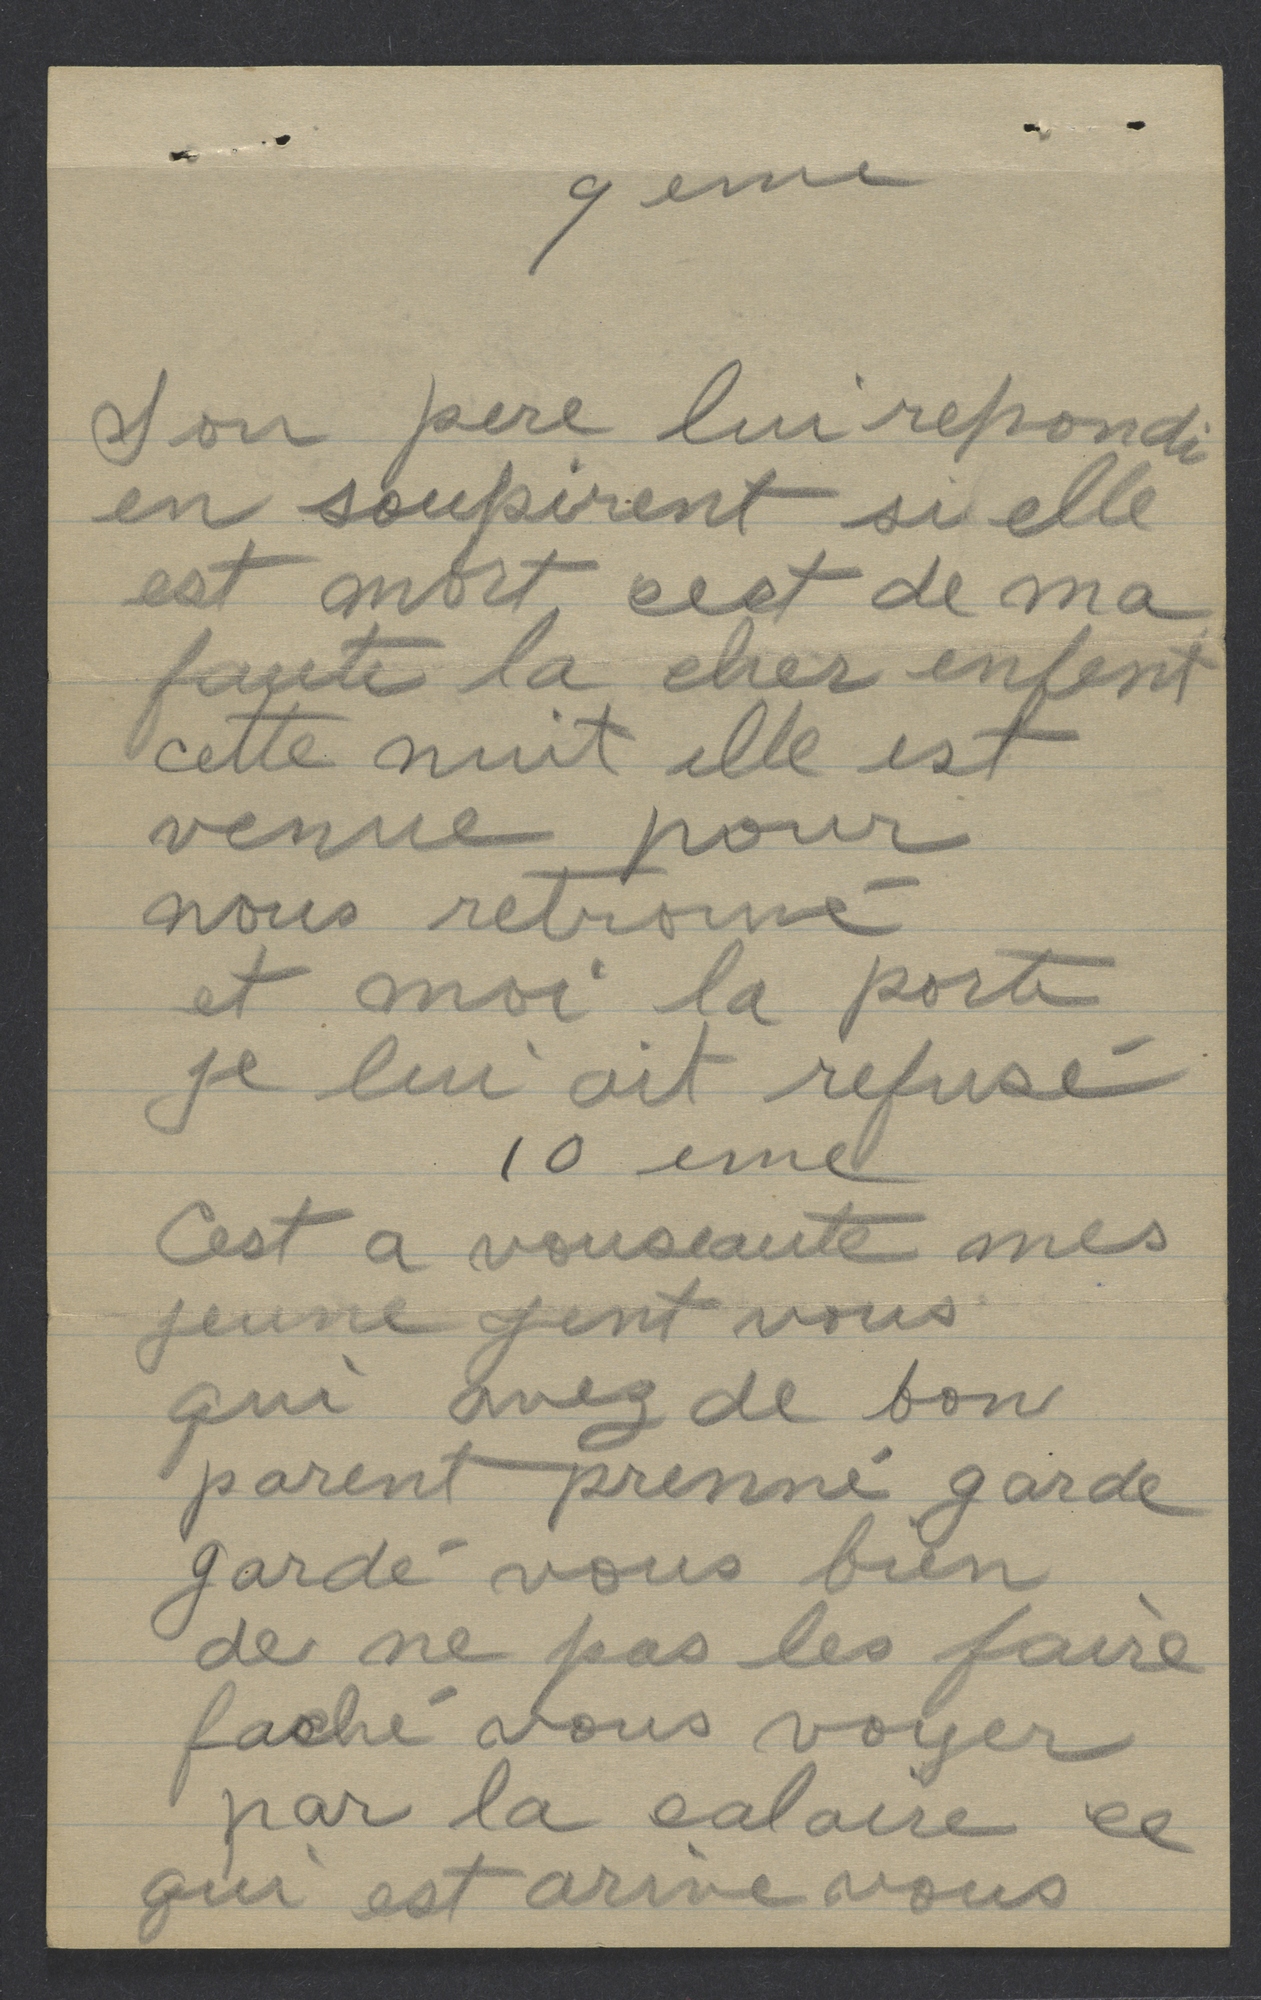 9 eme
Son pere lui repondi
en soupirent si elle
est mort cest de ma
faute la cher enfent
cette nuit elle est
venue pour
nous retrouvé
et moi la porte
je lui ait refusé
10 eme
Cest a vouseaute mes
jeune gent vous
qui avez de bon
parent prenné garde
gardé vous bien
de ne pas les faire
faché vous voyer
par la calaire ce
qui est arive vous